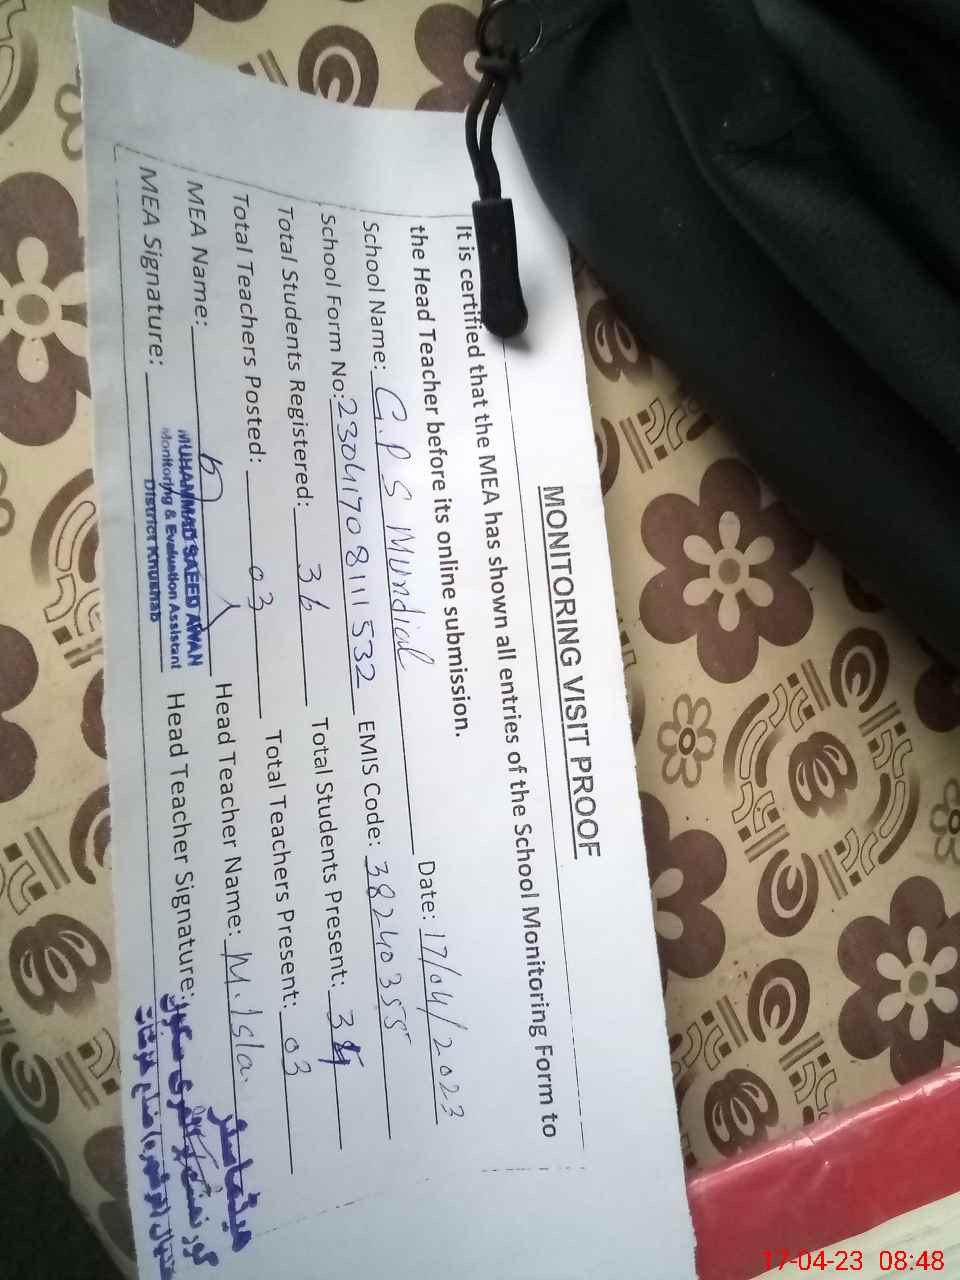 MONITORING VISIT PROOF
It is certified that the MEA has shown all entries of the School Monitoring Form to
the Head Teacher before its online submission.
School Name: G.P.S Mundial Date: 17/04/2023
School Form No: 23041708111532 EMIS Code: 38240355
Total Students Registered: 36 Total Students Present: 34
Total Teachers Posted: 03 Total Teachers Present: 03
MEA Name: Head Teacher Name: M. Isla.
MEA Signature: Head Teacher Signature:
MUHAMMAD SAEED AWAN
Monitoring & Evaluation Assistant
District Khushab
ہیڈ ماسٹر
گورنمنٹ پرائمری سکول
17-04-23 08:48